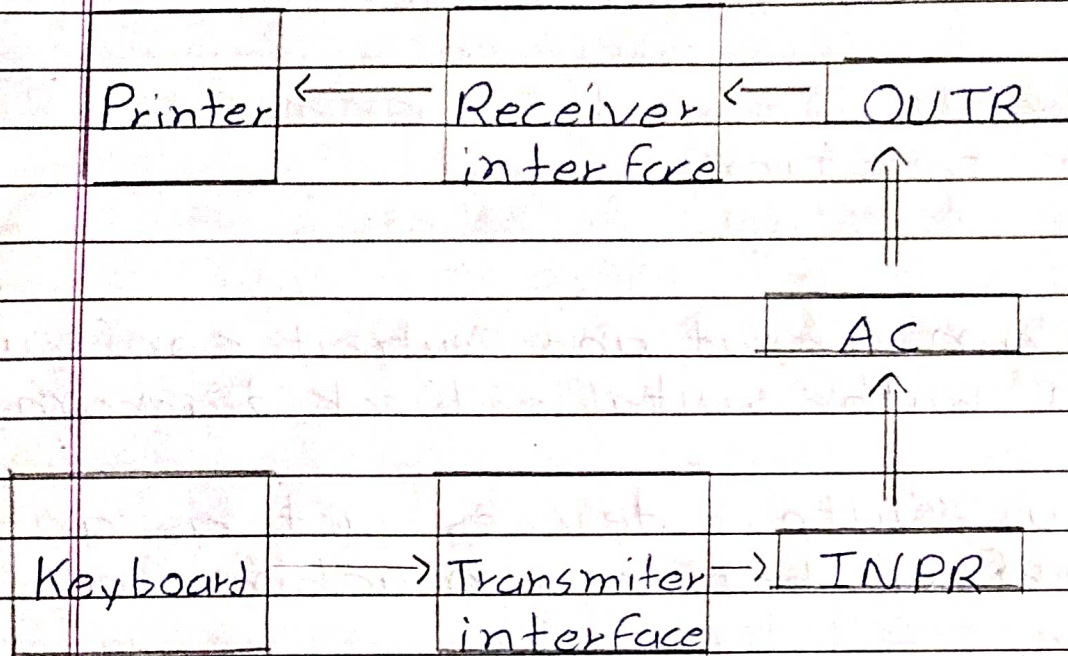 Printer
Receiver
interface
OUTR
AC
Keyboard
Transmiter
interface
INPR